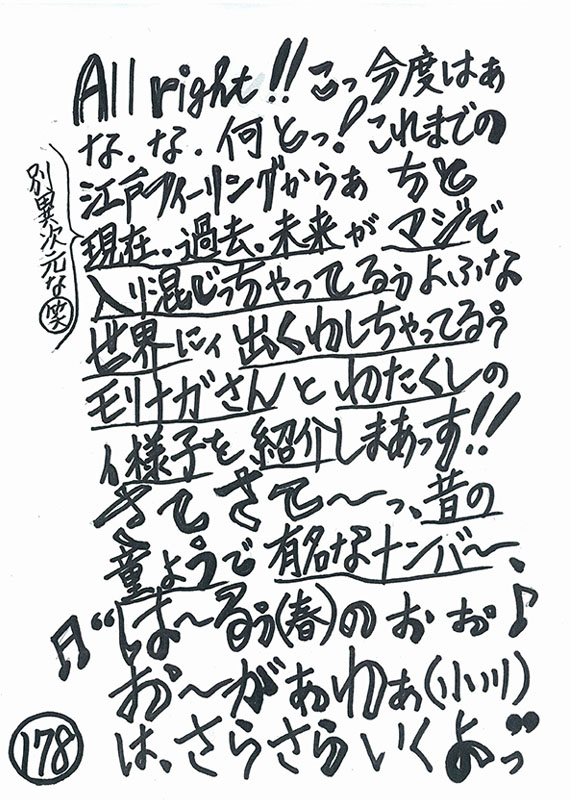 All right!!こっ今度はぁ
な.な.何とっ!これまでの
江戸フィーリングからぁ ちと
現在.過去.未来がマジで
入り混じっちゃってるぅよぉな
世界にィ出くわしちゃってるぅ
モリナガさんとわたくしの
ィ様子を紹介しまあっす!!
さてさて〜っ、昔の
童ようで有名なナンバ〜、
♬“は〜るぅ(春)のおお♪
お〜がぁわぁ(小川)
は、さらさらいくよっ”
別異次元な(笑)
178